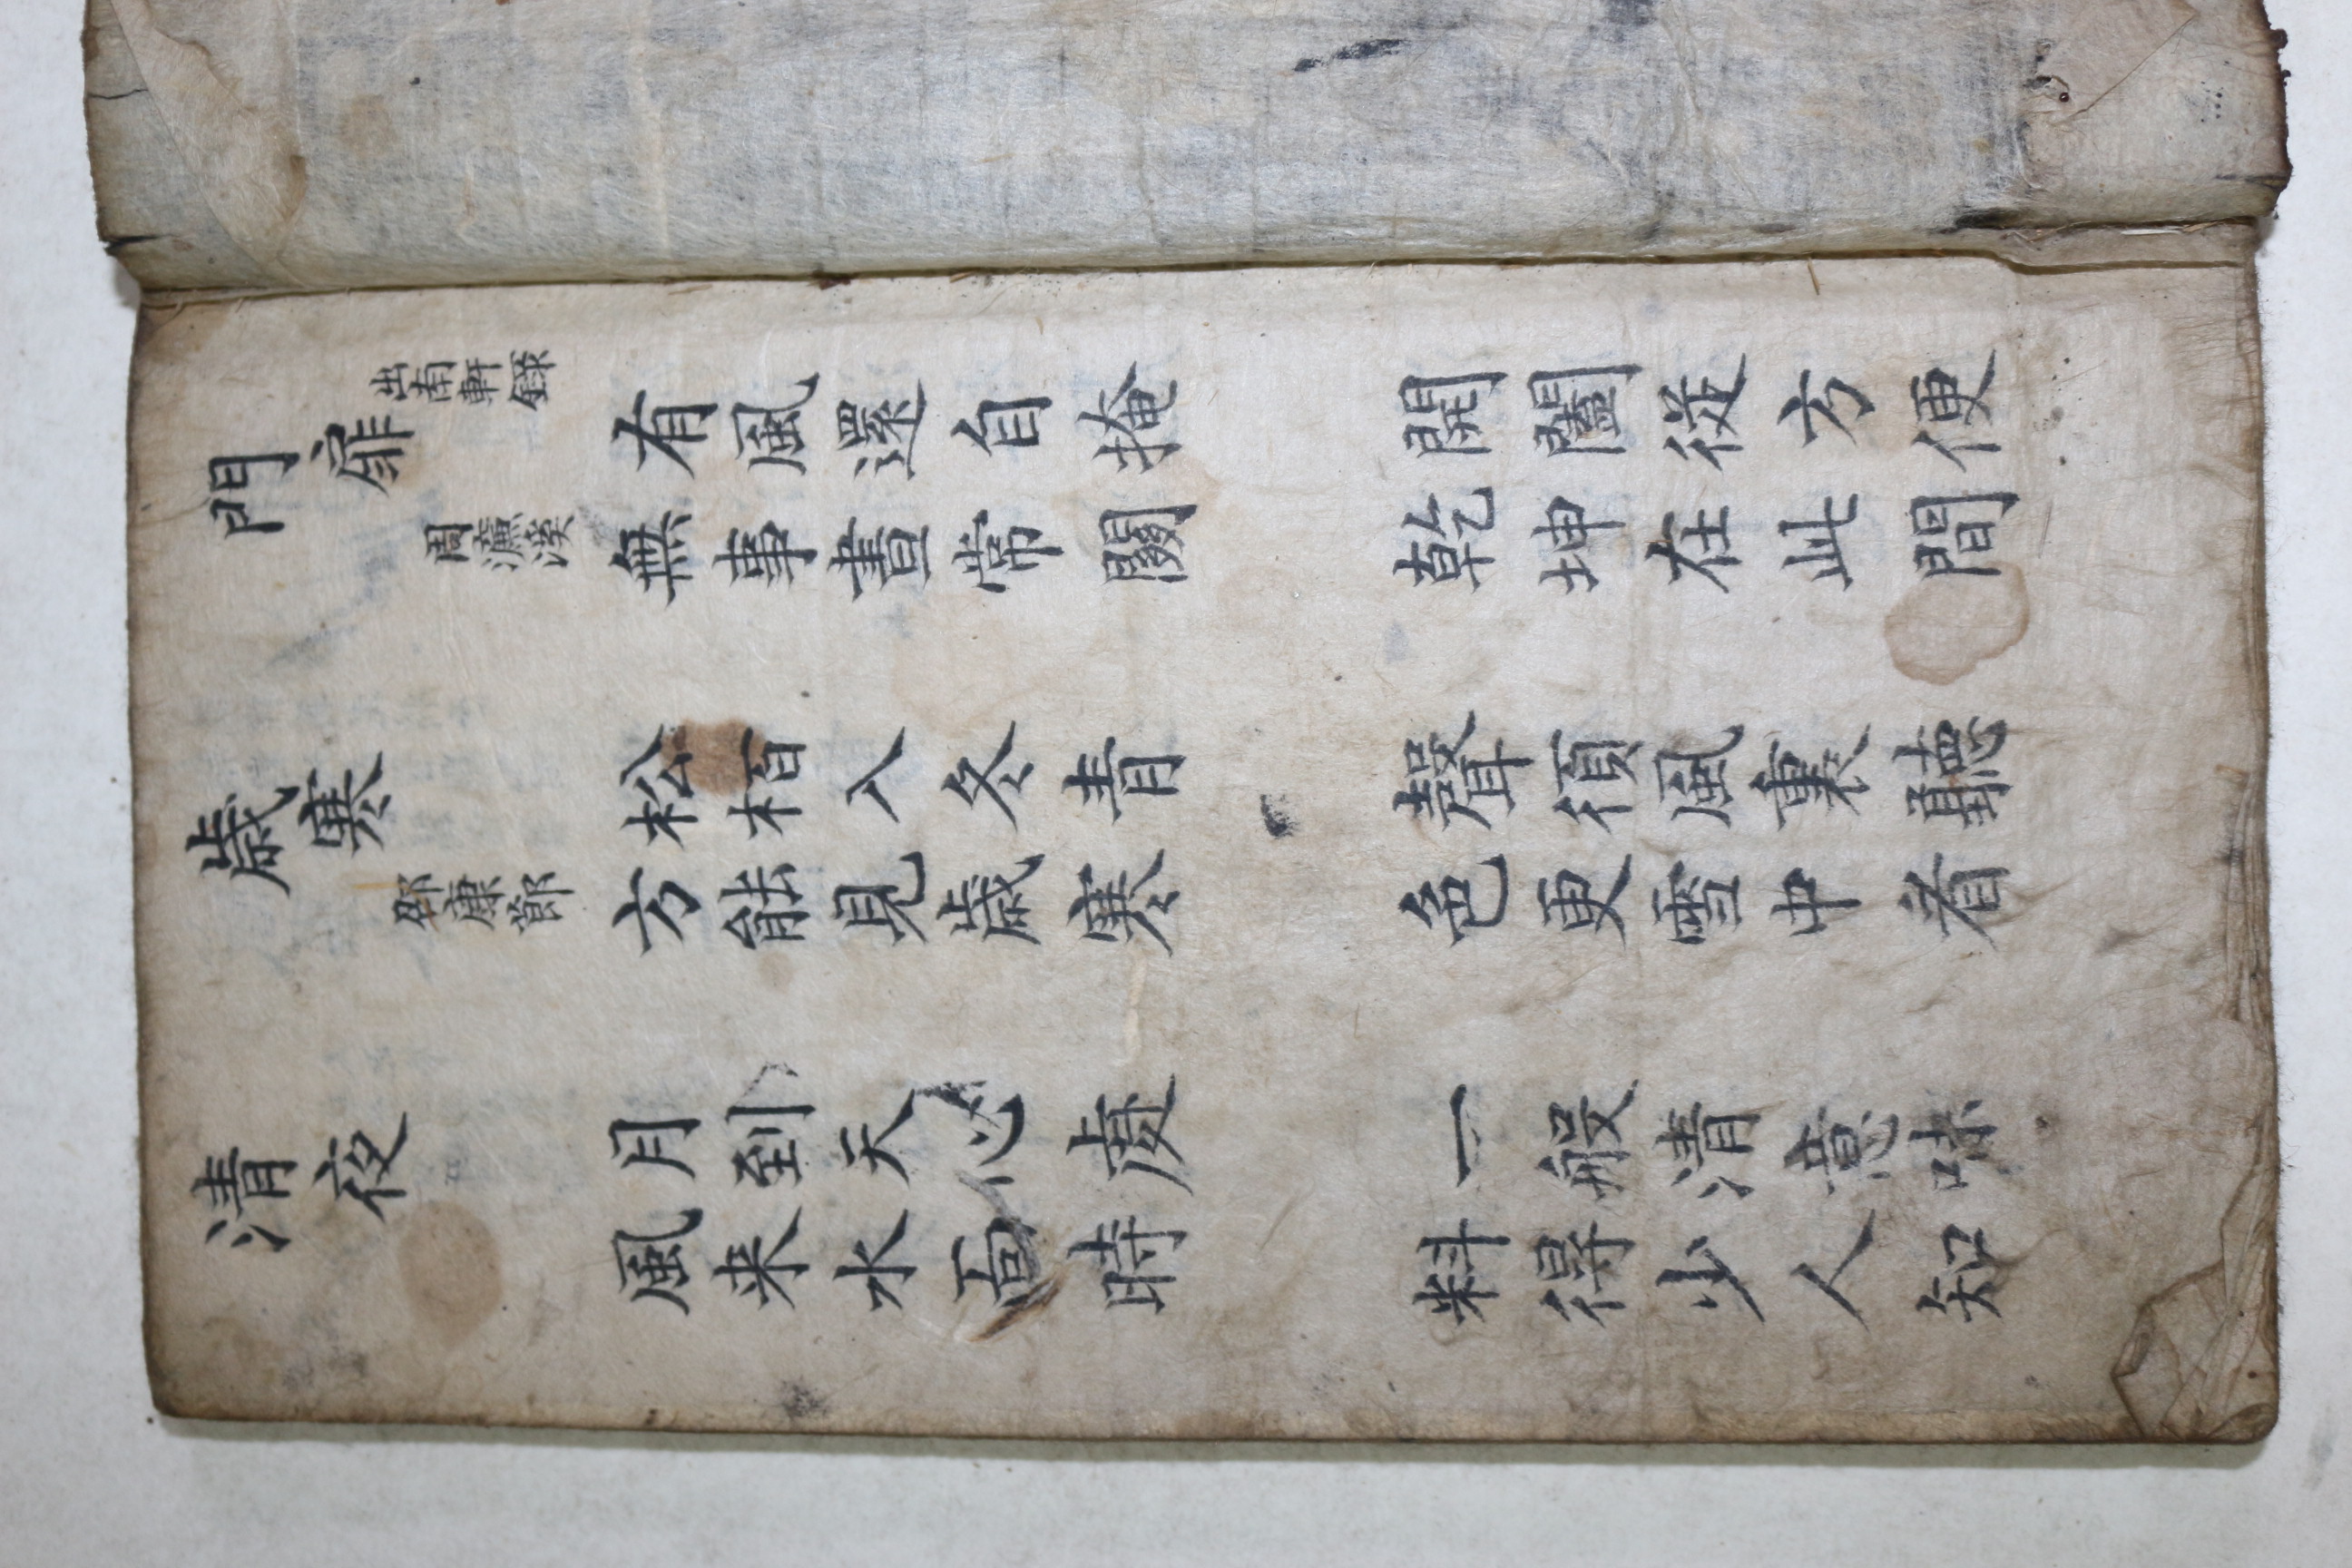 門扉
出南軒錄
周濂溪
有風還自掩
無事晝常關
開闔從方便
乾坤在此間
歲寒
邵康節
松栢入冬青
方能見歲寒
聲須風裏聽
色更雪中看
清夜
月到天心處
風来水面時
一般清意味
料得少人知